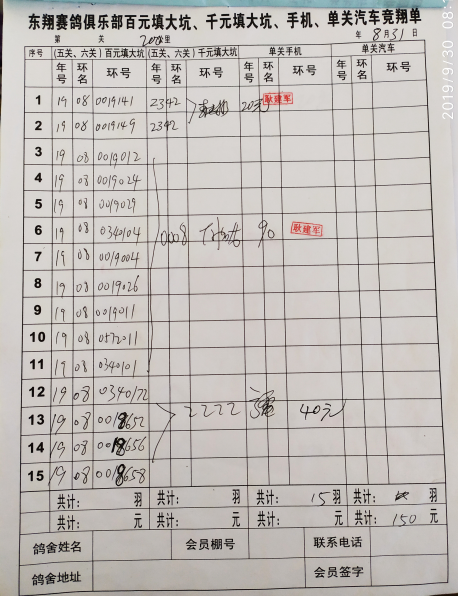 东翔赛鸽俱乐部百元填大坑、千元填大坑、手机、单关汽车竞翔单
第 关 200里 年 8月31日
序号 (五关、六关)百元填大坑 (五关、六关)千元填大坑 单关手机 单关汽车
年号 环名 环号 年号 环名 环号 年号 环名 环号 年号 环名 环号
1 19 08 0019141 2342 20元 耿建军
2 19 08 0019149 2342
3 19 08 0019012
4 19 08 0019024
5 19 08 0019029
6 19 08 0340104 0008 90 耿建军
7 19 08 0019004
8 19 08 0019026
9 19 08 0019011
10 19 08 0572011
11 19 08 0340101
12 19 08 0340172
13 19 08 0018652 2222 40元
14 19 08 0018656
15 19 08 0018658
共计: 羽 共计: 羽 共计: 15羽 共计: 羽
共计: 元 共计: 元 共计: 元 共计: 150元
鸽舍姓名 会员棚号 联系电话
鸽舍地址 会员签字
2019/9/30 08: